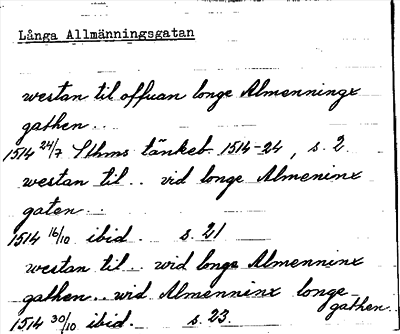 Långa Allmänningsgatan
westan til offuan longe Almenningx
gathen..
1514 24/7 Sthms tänkeb. 1514-24, s. 2
westan til.. vid longe Almeninx
gaten..
1514 16/10 ibid. s. 21
westan til.. wid longe Almenninx
gathen.. wid Almenninx longe
gathen..
1514 30/10 ibid. s. 23